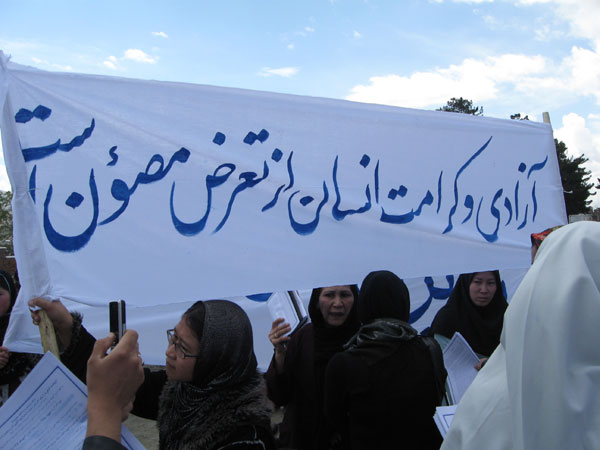 آزادی و کرامت انسان از تعرض مصؤن است